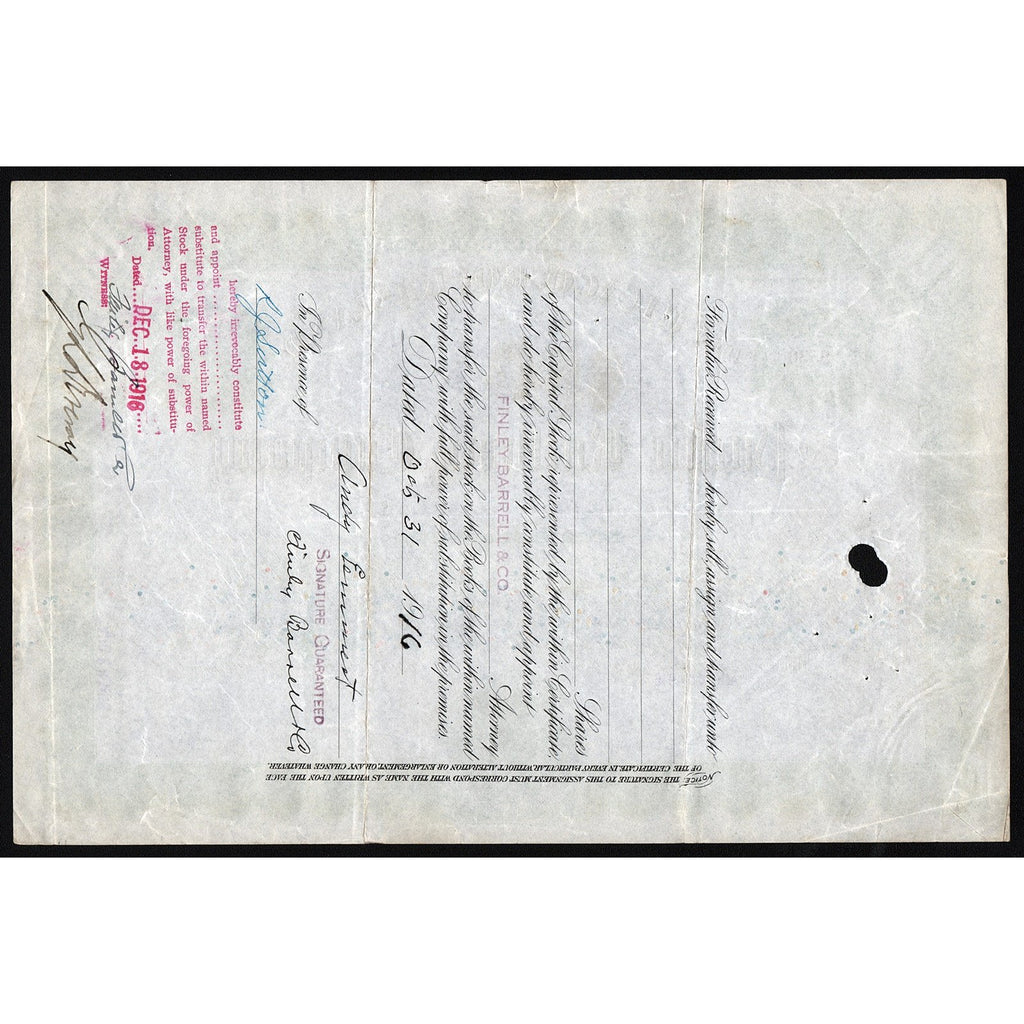 For value Received, hereby sell, assign and transfer unto
Shares
of the Capital Stock represented by the within Certificate,
and do hereby irrevocably constitute and appoint
FINLEY BARRELL & CO. Attorney
to transfer the said stock on the Books of the within named
Company, with full power of substitution in the premises.
Dated Oct 31 1916
Andy
SIGNATURE GUARANTEED
In Presence of
Finley Barrell & Co
hereby irrevocably constitute
and appoint ....................
substitute to transfer the within named
Stock under the foregoing power of
Attorney, with like power of substitu-
tion.
Dated....DEC.18.1916....
WITNESS:
NOTICE. THE SIGNATURE TO THIS ASSIGNMENT MUST CORRESPOND WITH THE NAME AS WRITTEN UPON THE FACE
OF THE CERTIFICATE, IN EVERY PARTICULAR, WITHOUT ALTERATION OR ENLARGEMENT, OR ANY CHANGE WHATEVER.